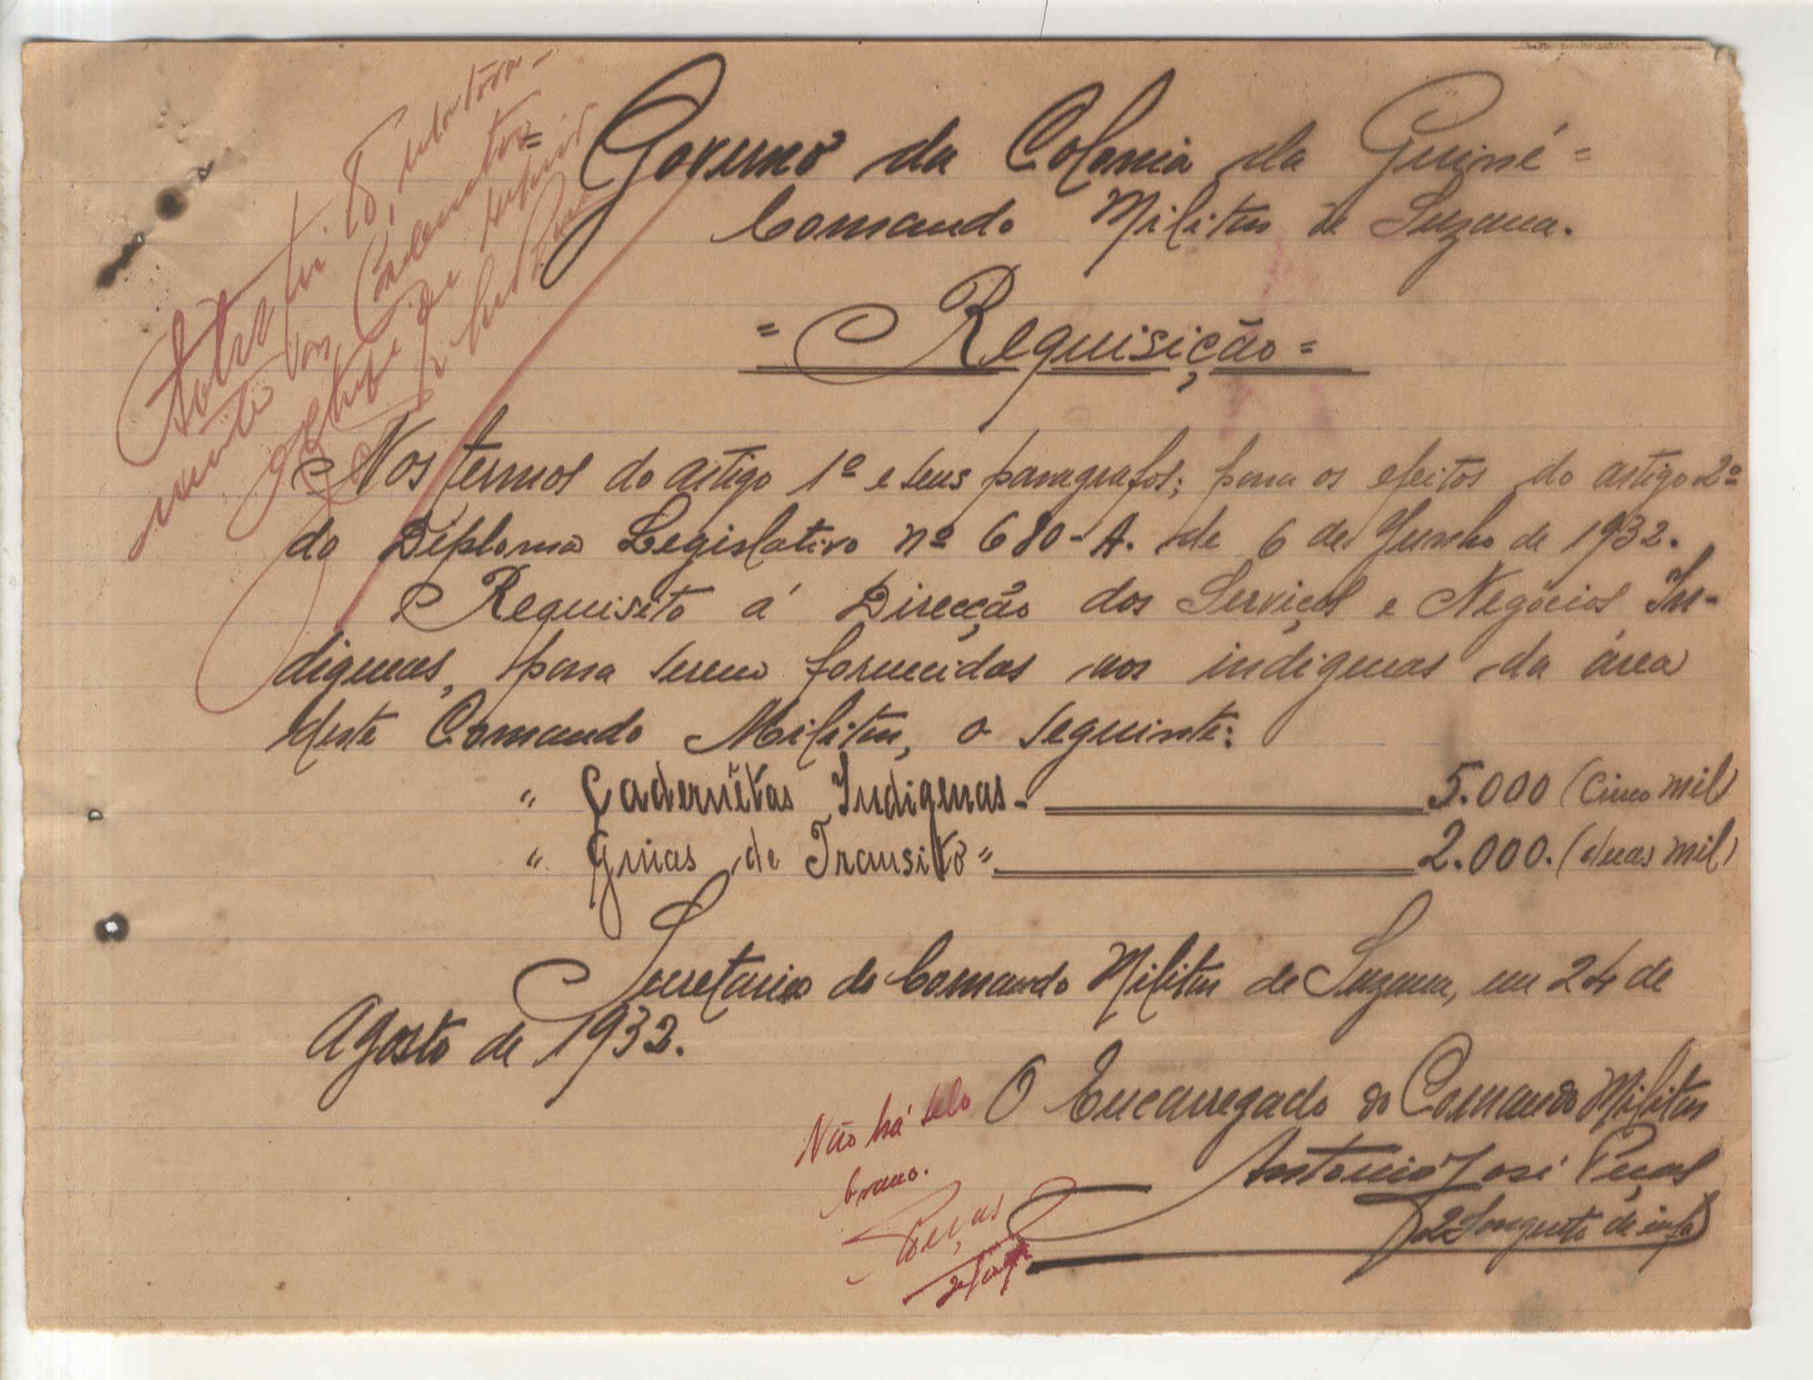 = Governo da Colonia da Guiné =
Comando Militar de Suzana.
= Requisição =
Nos termos do artigo 1º e seus paragrafos; para os efeitos do artigo 2º
do Diploma Legislativo nº 680-A. de 6 de Junho de 1932.
Requisito á Direcção dos Serviços e Negócios In-
digenas, para serem fornecidos aos indigenas da área
deste Comando Militar, o seguinte:
" Cadernêtas Indigenas - 5.000 (cinco mil)
" Guias de Transito " 2.000. (duas mil)
Secretaria do Comando Militar de Suzana, em 24 de
Agosto de 1932.
O Encarregado do Comando Militar
Antonio José Peças
2º Sargento de infª
Não há selo
branco.
Peças